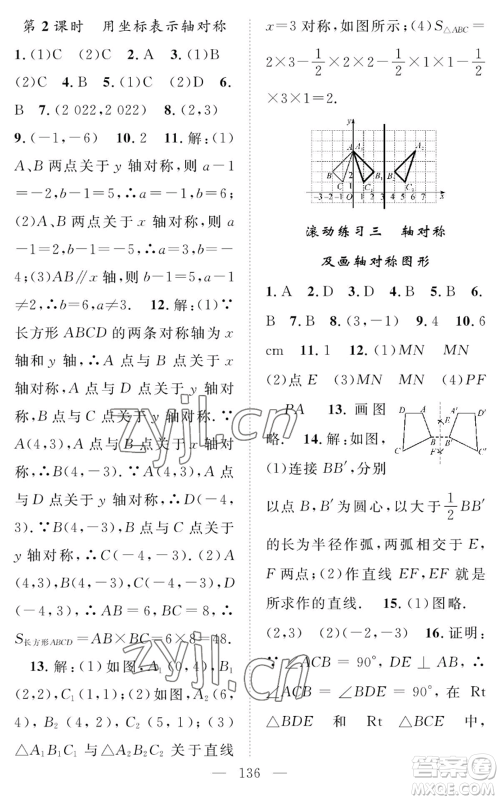 第2课时　用坐标表示轴对称
1.(1)C　(2)C　2.A　3.(1)B
(2)C　4.B　5.(1)A　(2)D　6.
B　7.(2 022,2 022)　8.(2,3)
9.(-1,-6)　10.2　11.解:(1)
A、B两点关于y轴对称,a-1
=-2,b-1=5,∴a=-1,b=6;
(2)A、B两点关于x轴对称,a
-1=2,b-1=-5,∴a=3,b=
-4;(3)AB∥x轴,∴a-1
≠2,b-1=5,∴a≠3,b=6.
(2)B点关于
12.解:(1)∵
长方形ABCD的两条对称轴为x
轴和y轴,∴A点与B点关于x
轴对称,A点与D点关于y轴对
称.∵A(4,3),∴B(4,-3),
D(-4,3).∵B(4,-3),B点
与C点关于y轴对称,∴C(-4,
-3).∵A(4,3),A点与C点关
于原点对称,∴C(-4,-3).(2)A
(4,3),B(4,-3),D
(-4,3),∴AB=6,BC=8,∴
S长方形ABCD=AB×BC=6×8=48.
13.解:(1)如图,A₁(0,4),B₁
(2,2),C₁(1,1);(2)如图,A₂(6,
4),B₂(4,2),C₂(5,1);(3)
△A₁B₁C₁与△A₂B₂C₂关于直线
x=3对称,(4)S△ABC=
2×3-1/2×2×2-1/2×1×1-1/2
×3×1=2.
滚动练习三　轴对称
及画轴对称图形
1.A　2.D　3.D　4.B　5.B　6.
B　7.B　8.(3,-1)　9.4　10.6
cm　11.1　12.(1)MN　MN
(2)点E　(3)MN　(4)PF
PA　13.画图
略.　14.解:如图,
(1)连接BB′,分别
以点B,B′为圆心,以大于1/2BB′
的长为半径作弧,两弧交于E,
F两点;(2)作直线EF,EF就是
所求作的直线.　15.(1)图略.
(2,3)　(2)(2,3)　16.证明:
∵∠ABC=90°,DE⊥AB,∴
∠BDE=90°.在Rt△ABC
和Rt△BDE中,
136
zyjl.cn